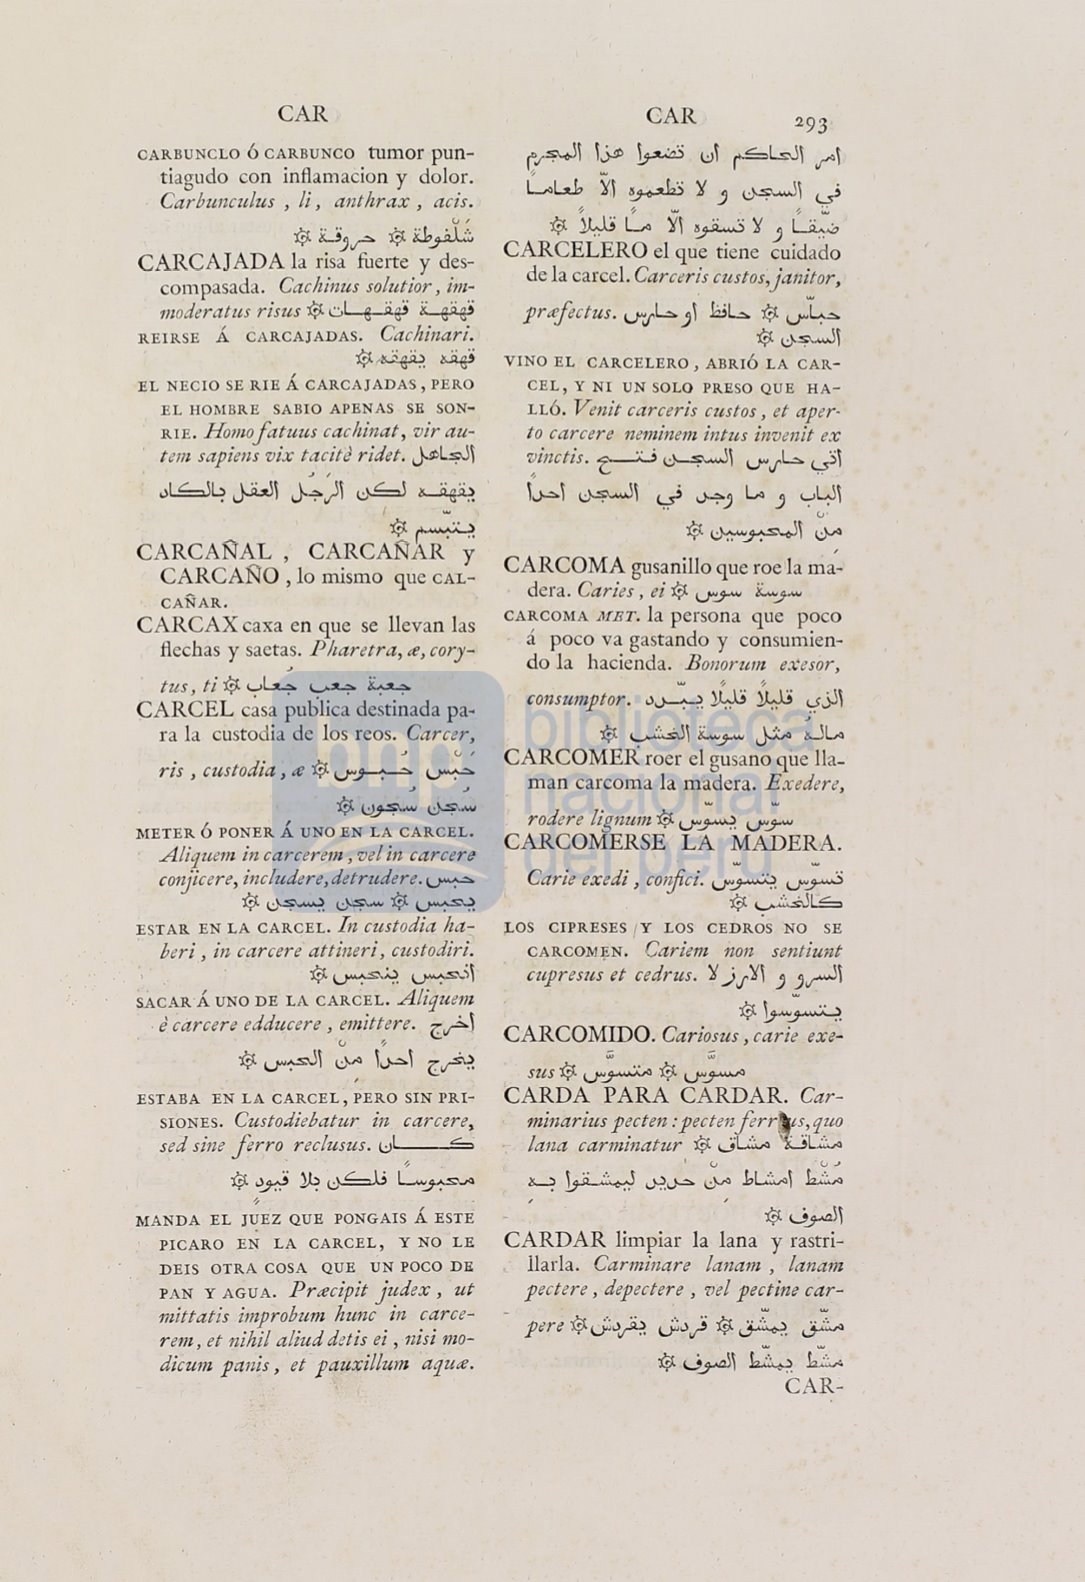 CAR
CARBUNCLO Ó CARBUNCO tumor pun-
tiagudo con inflamacion y dolor.
Carbunculus , li , anthrax , acis.
شَلْفوطة ۞ حروقـة ۞
CARCAJADA la risa fuerte y des-
compasada. Cachinus solutior, im-
moderatus risus ۞ قهقهـة قهقـهـات
REIRSE Á CARCAJADAS. Cachinari.
قهقه يقهقه ۞
EL NECIO SE RIE Á CARCAJADAS , PERO
EL HOMBRE SABIO APENAS SE SON-
RIE. Homo fatuus cachinat, vir au-
tem sapiens vix tacitè ridet. الجاهل
يقهقـه لكن الرَجُل العقل بالكاد
يـتبّسم ۞
CARCAÑAL , CARCAÑAR y
CARCAÑO , lo mismo que CAL-
CAÑAR.
CARCAX caxa en que se llevan las
flechas y saetas. Pharetra, æ, cory-
tus, ti ۞ جعبة جعب جُعاب
CARCEL casa publica destinada pa-
ra la custodia de los reos. Carcer,
ris , custodia , æ ۞ حَبْس حُـبـوس
سُجن سُجون ۞
METER Ó PONER Á UNO EN LA CARCEL.
Aliquem in carcerem , vel in carcere
conjicere, includere, detrudere. حبس
يحبس ۞ سجن يسجن ۞
ESTAR EN LA CARCEL. In custodia ha-
beri , in carcere attineri, custodiri.
انحبس ينحبس ۞
SACAR Á UNO DE LA CARCEL. Aliquem
è carcere edducere , emittere. اخرج
يخرج احداً مِنْ الحبس ۞
ESTABA EN LA CARCEL, PERO SIN PRI-
SIONES. Custodiebatur in carcere,
sed sine ferro reclusus. كــــان
محبوسـاً فلكن بلا قيودٍ ۞
MANDA EL JUEZ QUE PONGAIS Á ESTE
PICARO EN LA CARCEL, Y NO LE
DEIS OTRA COSA QUE UN POCO DE
PAN Y AGUA. Præcipit judex , ut
mittatis improbum hunc in carce-
rem, et nihil aliud detis ei , nisi mo-
dicum panis , et pauxillum aquæ.
CAR 293
امر الحاكم ان تضعوا هذا المجرم
في السجن و لا تطعموه الّا طعامـاً
ضيّقـاً و لا تسقوه الّا مـاً قليلاً ۞
CARCELERO el que tiene cuidado
de la carcel. Carceris custos, janitor,
præfectus. حبّاس ۞ حافظ او حارس
السجن ۞
VINO EL CARCELERO , ABRIÓ LA CAR-
CEL, Y NI UN SOLO PRESO QUE HA-
LLÓ. Venit carceris custos , et aper-
to carcere neminem intus invenit ex
vinctis. اتي حارس السجـن فـتـح
الباب و ما وجد في السجن احداً
مِنْ المحبوسين ۞
CARCOMA gusanillo que roe la ma-
dera. Caries , ei ۞ سوسة سوس
CARCOMA MET. la persona que poco
á poco va gastando y consumien-
do la hacienda. Bonorum exesor,
consumptor. الذي قليلاً قليلاً يـبّـدد
مالـهُ مثل سوسة الخشب ۞
CARCOMER roer el gusano que lla-
man carcoma la madera. Exedere,
rodere lignum ۞ سوّس يسوّس
CARCOMERSE LA MADERA.
Carie exedi , confici. تسوّس يتسوّس
كالخشب ۞
LOS CIPRESES Y LOS CEDROS NO SE
CARCOMEN. Cariem non sentiunt
cupresus et cedrus. السرو و الارز لا
يـتسوّسوا ۞
CARCOMIDO. Cariosus , carie exe-
sus ۞ مسوَّس ۞ متسوَّس
CARDA PARA CARDAR. Car-
minarius pecten : pecten ferreus, quo
lana carminatur ۞ مشاقـة مشاق
مُشْط امشاط مِنْ حديد ليمشقوا بـهِ
الصوف ۞
CARDAR limpiar la lana y rastri-
llarla. Carminare lanam , lanam
pectere , depectere , vel pectine car-
pere ۞ مشّق يمشّق ۞ قردش يقردش
مشّط يمشّط الصوف ۞
CAR-
bnp biblioteca
nacional
del perú